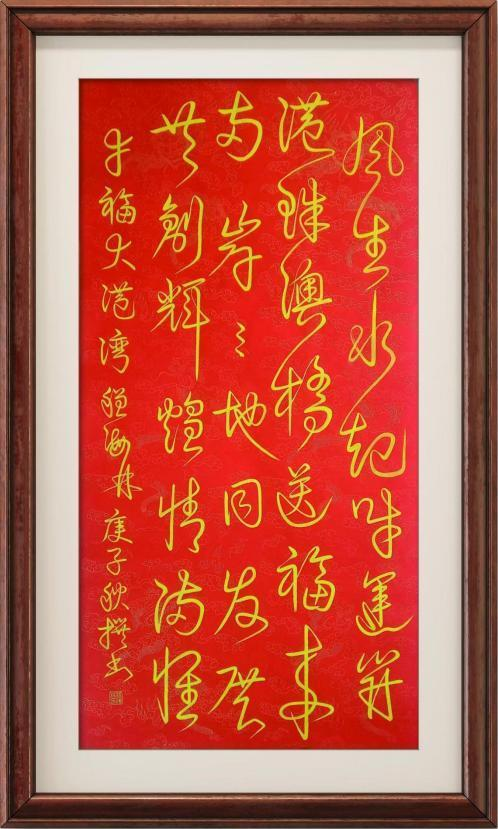 风生水起时運開
港珠澳橋送福来
两岸三地同发展
共創辉煌情满怀
幸福大港湾 海林 庚子秋撰书